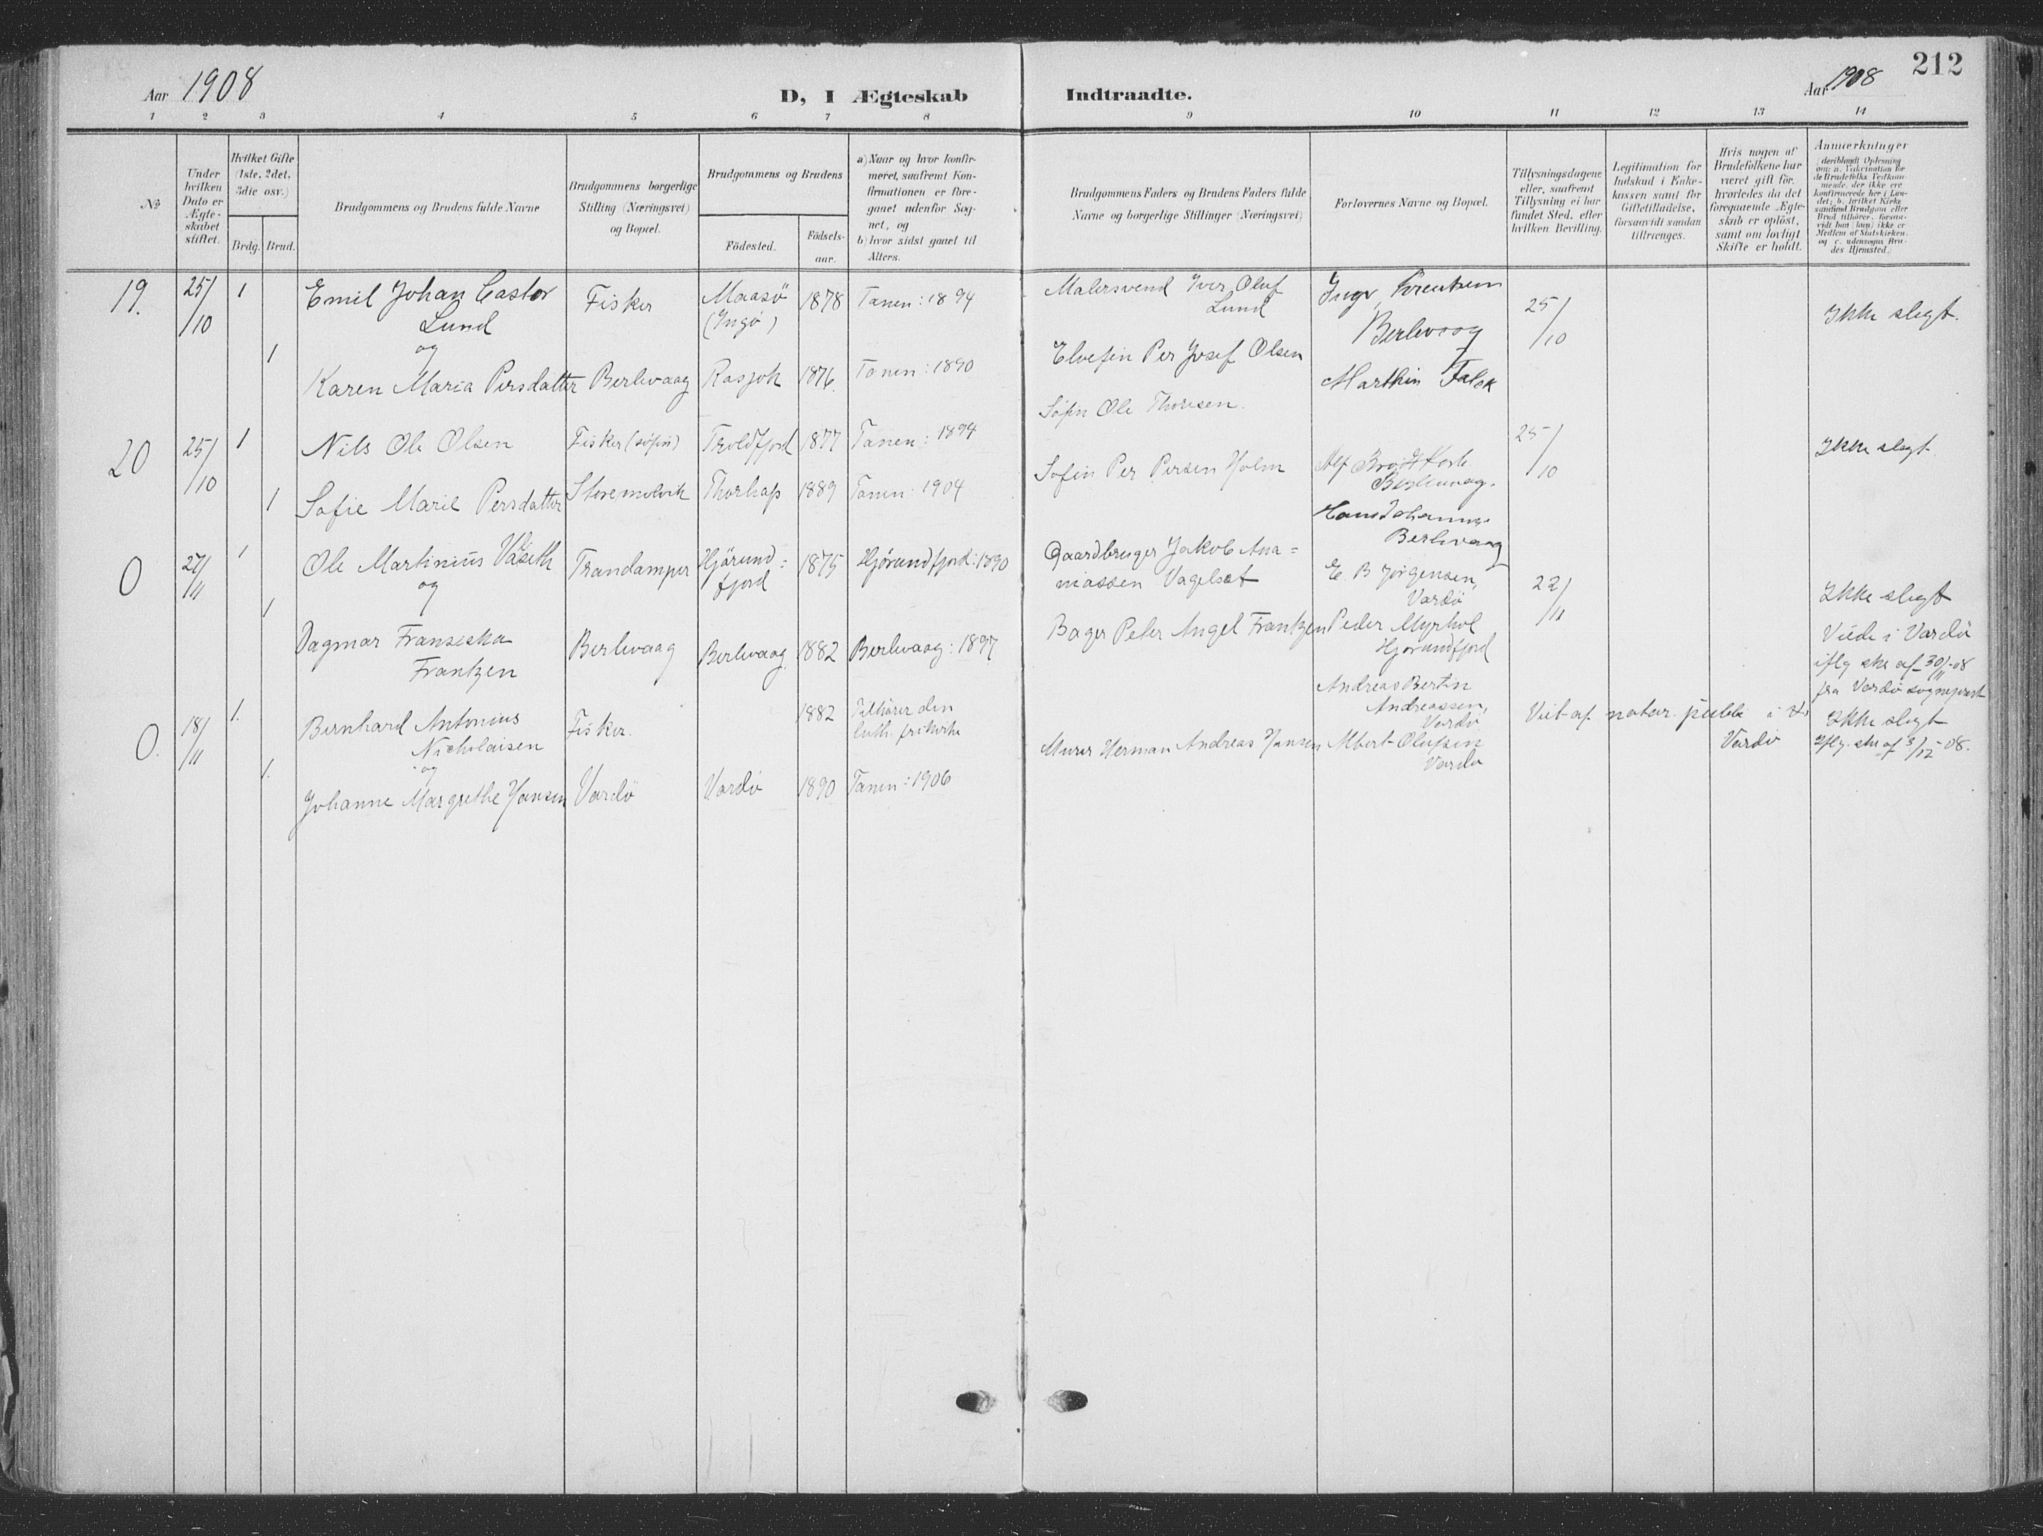 Aar 1908
D, I Ægteskab
Indtraadte.
Aar 1908
212
1 2 3 4 5 6 7 8 9 10 11 12 13 14
No
Under hvilken Dato er Ægte-skabet stiftet.
Hvilket Gifte (1ste, 2det, 3die osv.)
Brdg. Brud.
Brudgommens og Brudens fulde Navne
Brudgommens borgerlige Stilling (Næringsvei) og Bopæl.
Brudgommens og Brudens
Födested.
Födsels-aar.
a) Naar og hvor konfir-meret, saafremt Kon-firmationen er fore-gaaet udenfor Sog-net, og
b) hvor sidst gaaet til Alters.
Brudgommens Faders og Brudens Faders fulde Navne og borgerlige Stillinger (Næringsvei)
Forlovernes Navne og Bopæl.
Tillysningsdagene eller, saafremt Tillysning ei har fundet Sted, efter hvilken Bevilling.
Legitimation for Indskud i Enke-kassen samt for Giftetilladelse, forsaavidt saadan tiltrænges.
Hvis nogen af Brudefolkene har været gift før, hvorledes da det foregaaende Ægte-skab er oplöst, samt om lovligt Skifte er holdt.
Anmærkninger
19. 25/10 1 Emil Johan Castor Lund Fisker Maasö (Ingö) 1878 Tanen: 1894 Malersvend Iver Oluf Lund
Berlevaag 25/10 Ikke slegt.
og
1 Karen Maria Persdatter Berlevaag Rasjok 1876 Tanen: 1890 Elvefin Per Josef Olsen Marthin Falck
20 25/10 1 Nils Ole Olsen Fisker (söfin) Troldfjord 1877 Tanen: 1894 Söfin Ole Thoresen. 25/10 Ikke slegt.
Berlevaag.
1 Sofie Marie Persdatter Storemolvik 1889 Tanen: 1904 Söfin Per Persen Holm
Berlevaag
0 27/11 1 Ole Martinius Trandamper Hjörund-fjord 1875 Hjörundfjord: 1890 Gaardbruger Jakob Ana-niassen Vagelset E. B. Jörgensen, Vardö 22/11 Ikke slegt
og
1 Dagmar Franziska Frantzen Berlevaag Berlevaag 1882 Berlevaag: 1897 Bager Peter Angel Frantzen Peder Myrhol Hjörundfjord
Viede i Vardö
iflg. skr. af 30/11-08
fra Vardö sogneprest
0. 18/11 1. Bernhard Antonius Nicholaisen Fisker. 1882 Tilhører den luth. frikirke Andreas Bertin Andreassen, Vardö
Viet af notar. publ. i Vardö
Ikke slegt
Iflg. skr. af 3/12-08.
og
1. Johanne Margrethe Hansen Vardö Vardö 1890 Tanen: 1906 Murer Herman Andreas Hansen Albert Olufsen Vardö